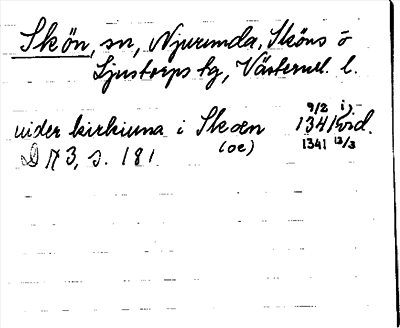 Skön, sn, Njurunda, Sköns o
Ljustorps tg, Västernl. l.
9/2 i)
uider kirkiuna i Skoen 1341 vid.
(oe) 1341 13/3
DN 3, s. 181